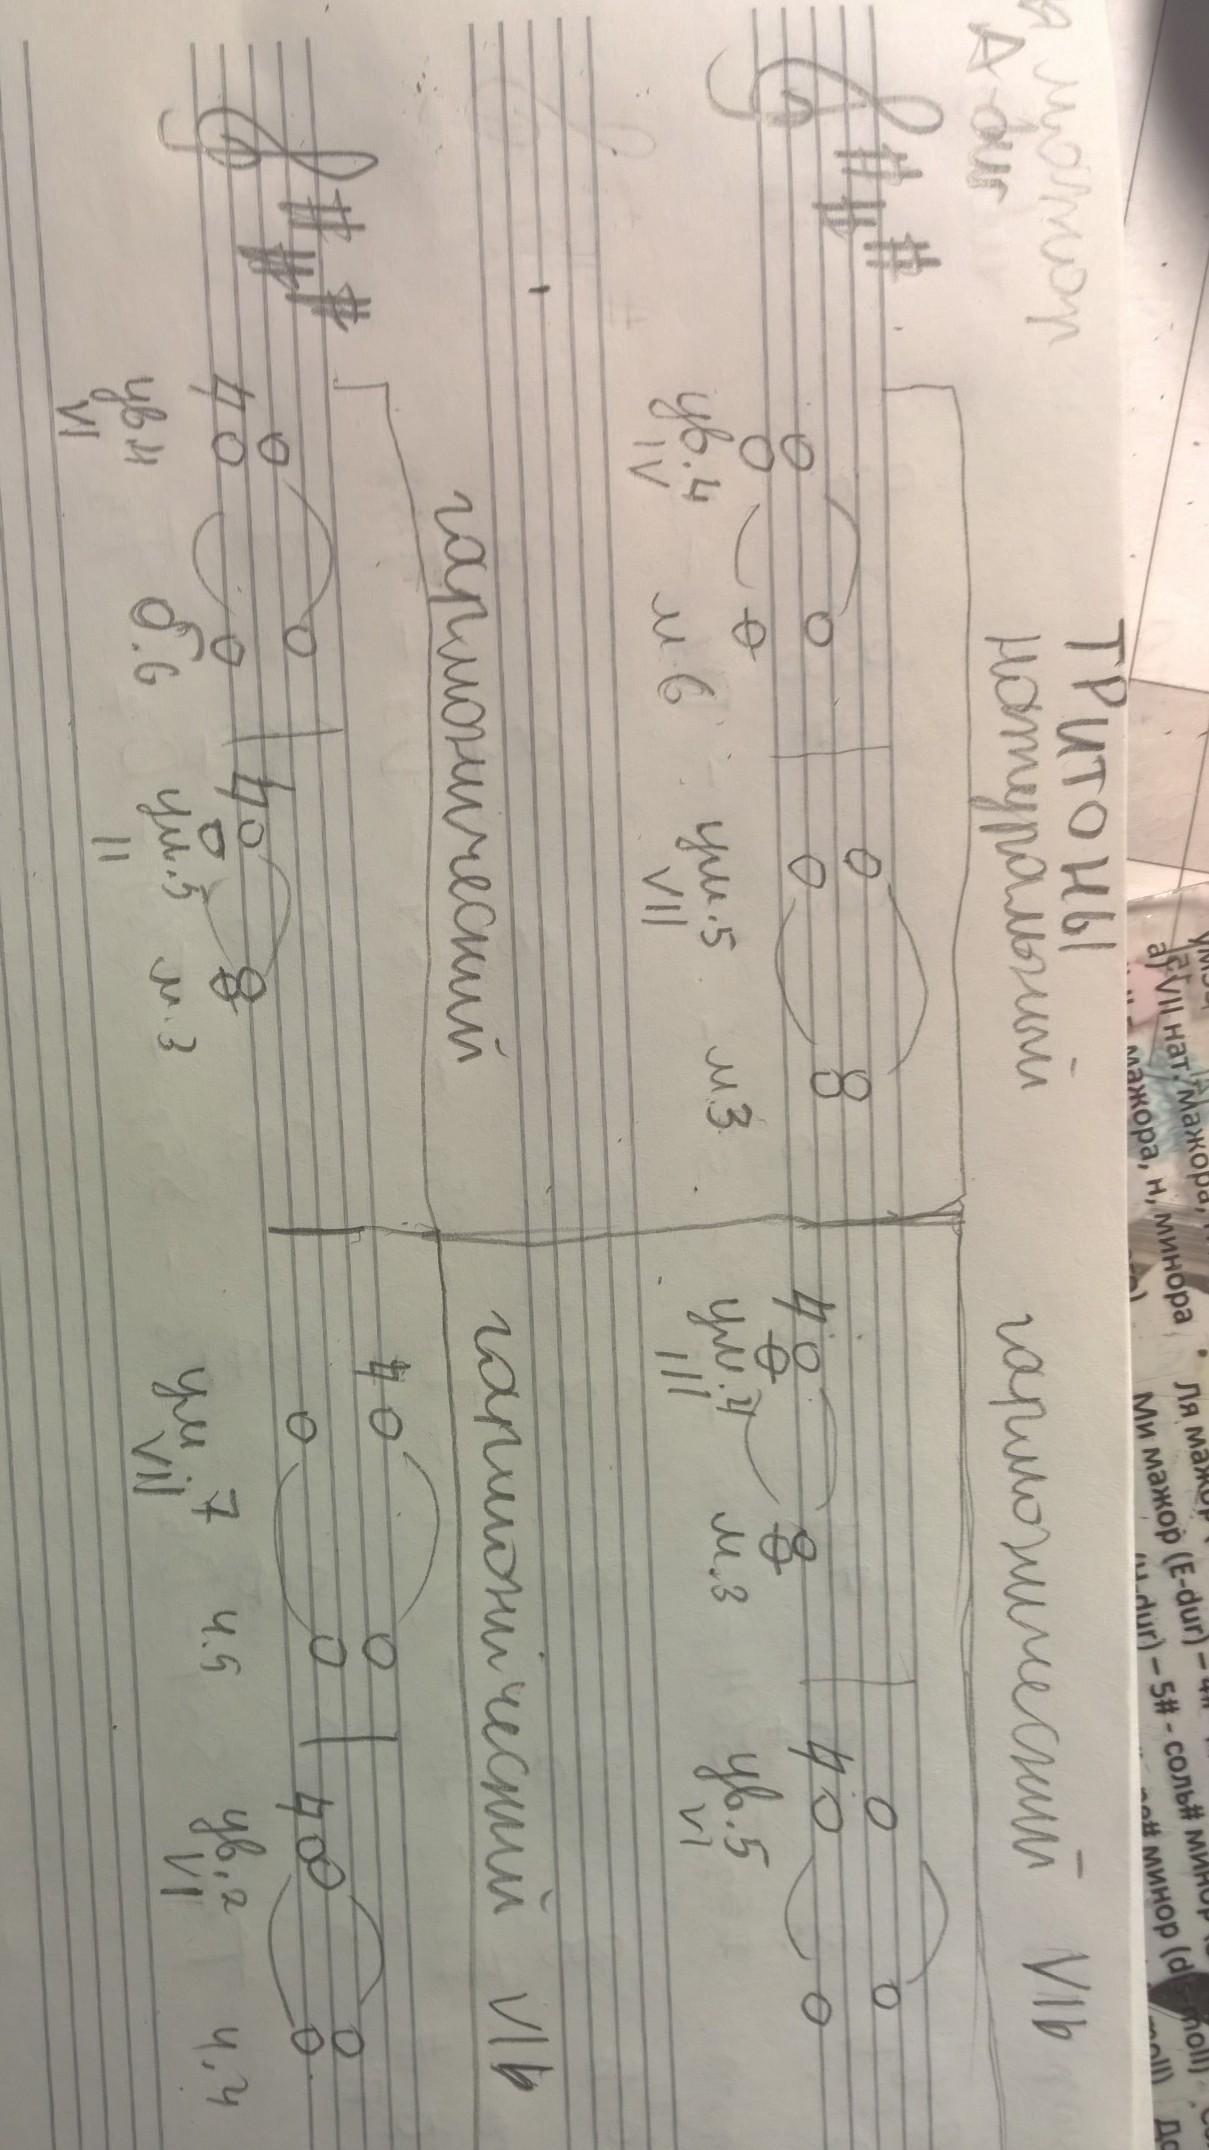 Ля мажор
A-dur
ТРИТОНЫ
натуральный гармонический VIb
ув.4 м.6 ум.5 м.3 ум.4 м.3 ув.5
IV VII III VI
гармонический гармонический VIb
ув4 б.6 ум.5 м.3 ум.7 ч.5 ув.2 ч.4
VI II VII VI
а) VII нат. мажора,
мажора, н, минора
Ля мажор
Ми мажор (E-dur) – 4#
(H-dur) – 5# - соль# минор
минор (d